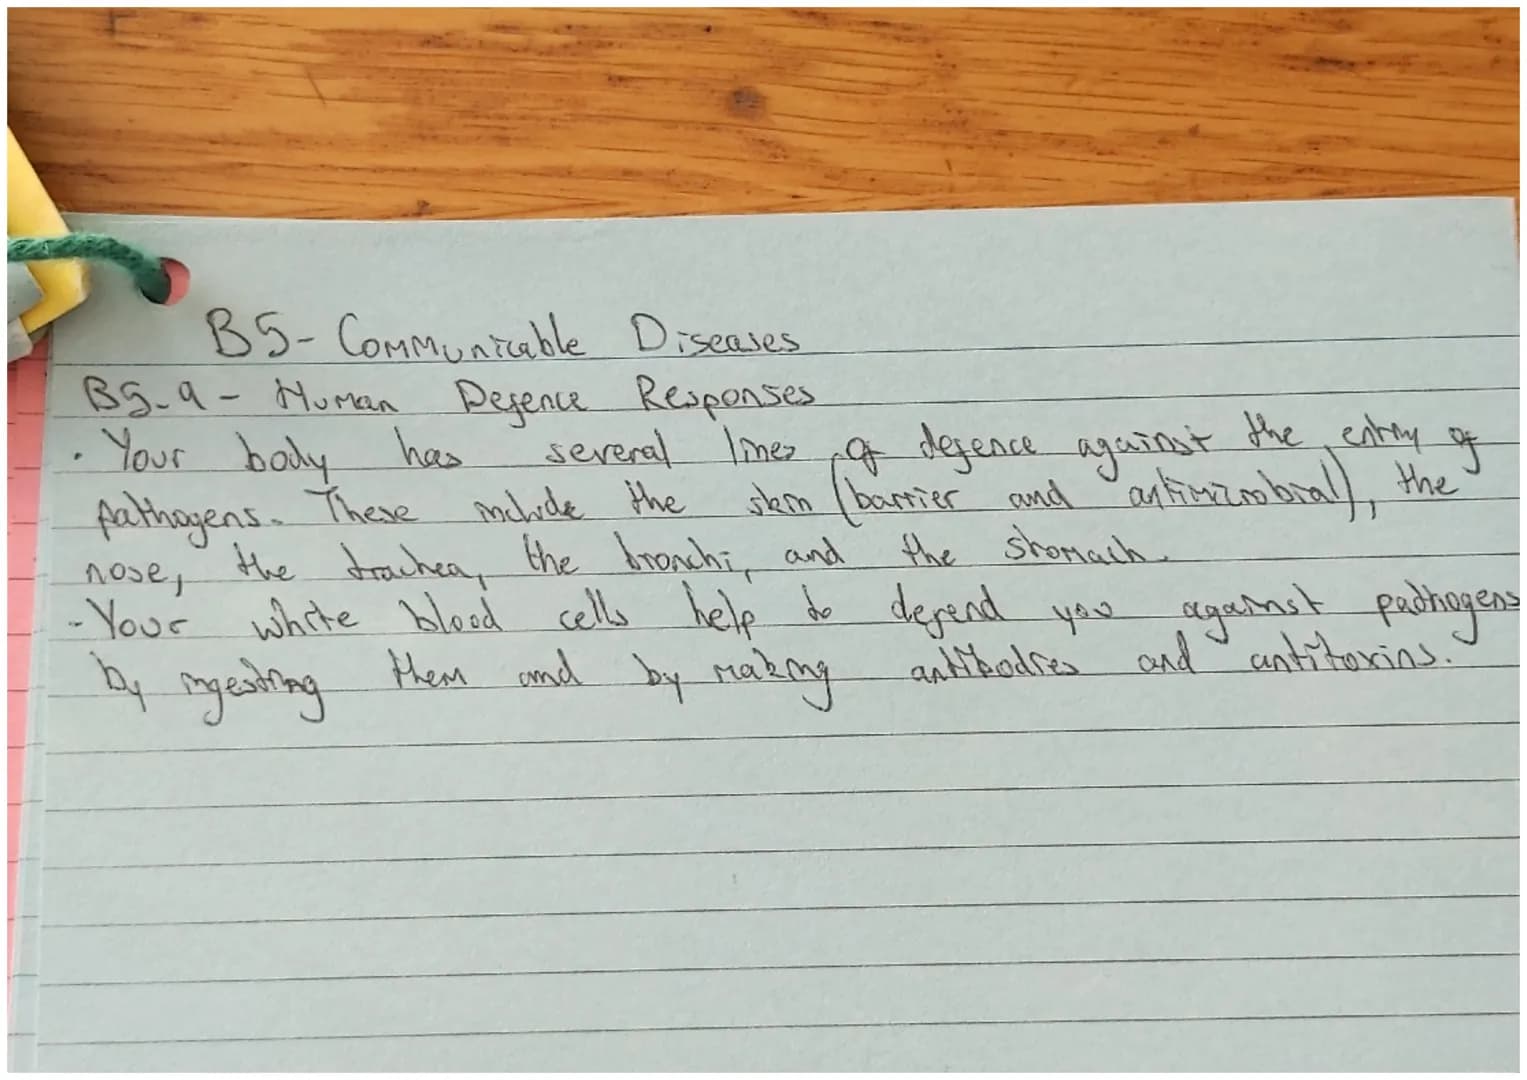 B5- Communicable Diseases
B5.9 - Human Defence Responses
· Your body has several lines of defence against the entry of
pathogens. These include the skin (barrier and antimicrobial), the
nose, the trachea, the bronchi, and the stomach.
- Your white blood cells help to defend you against pathogens
by ingesting them and by making antibodies and antitoxins.